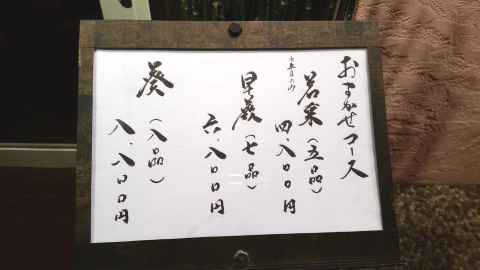 おまかせコース
※平日のみ
若菜(五品)
四、八〇〇円
早蕨(七品)
六、八〇〇円
葵(八品)
八、八〇〇円